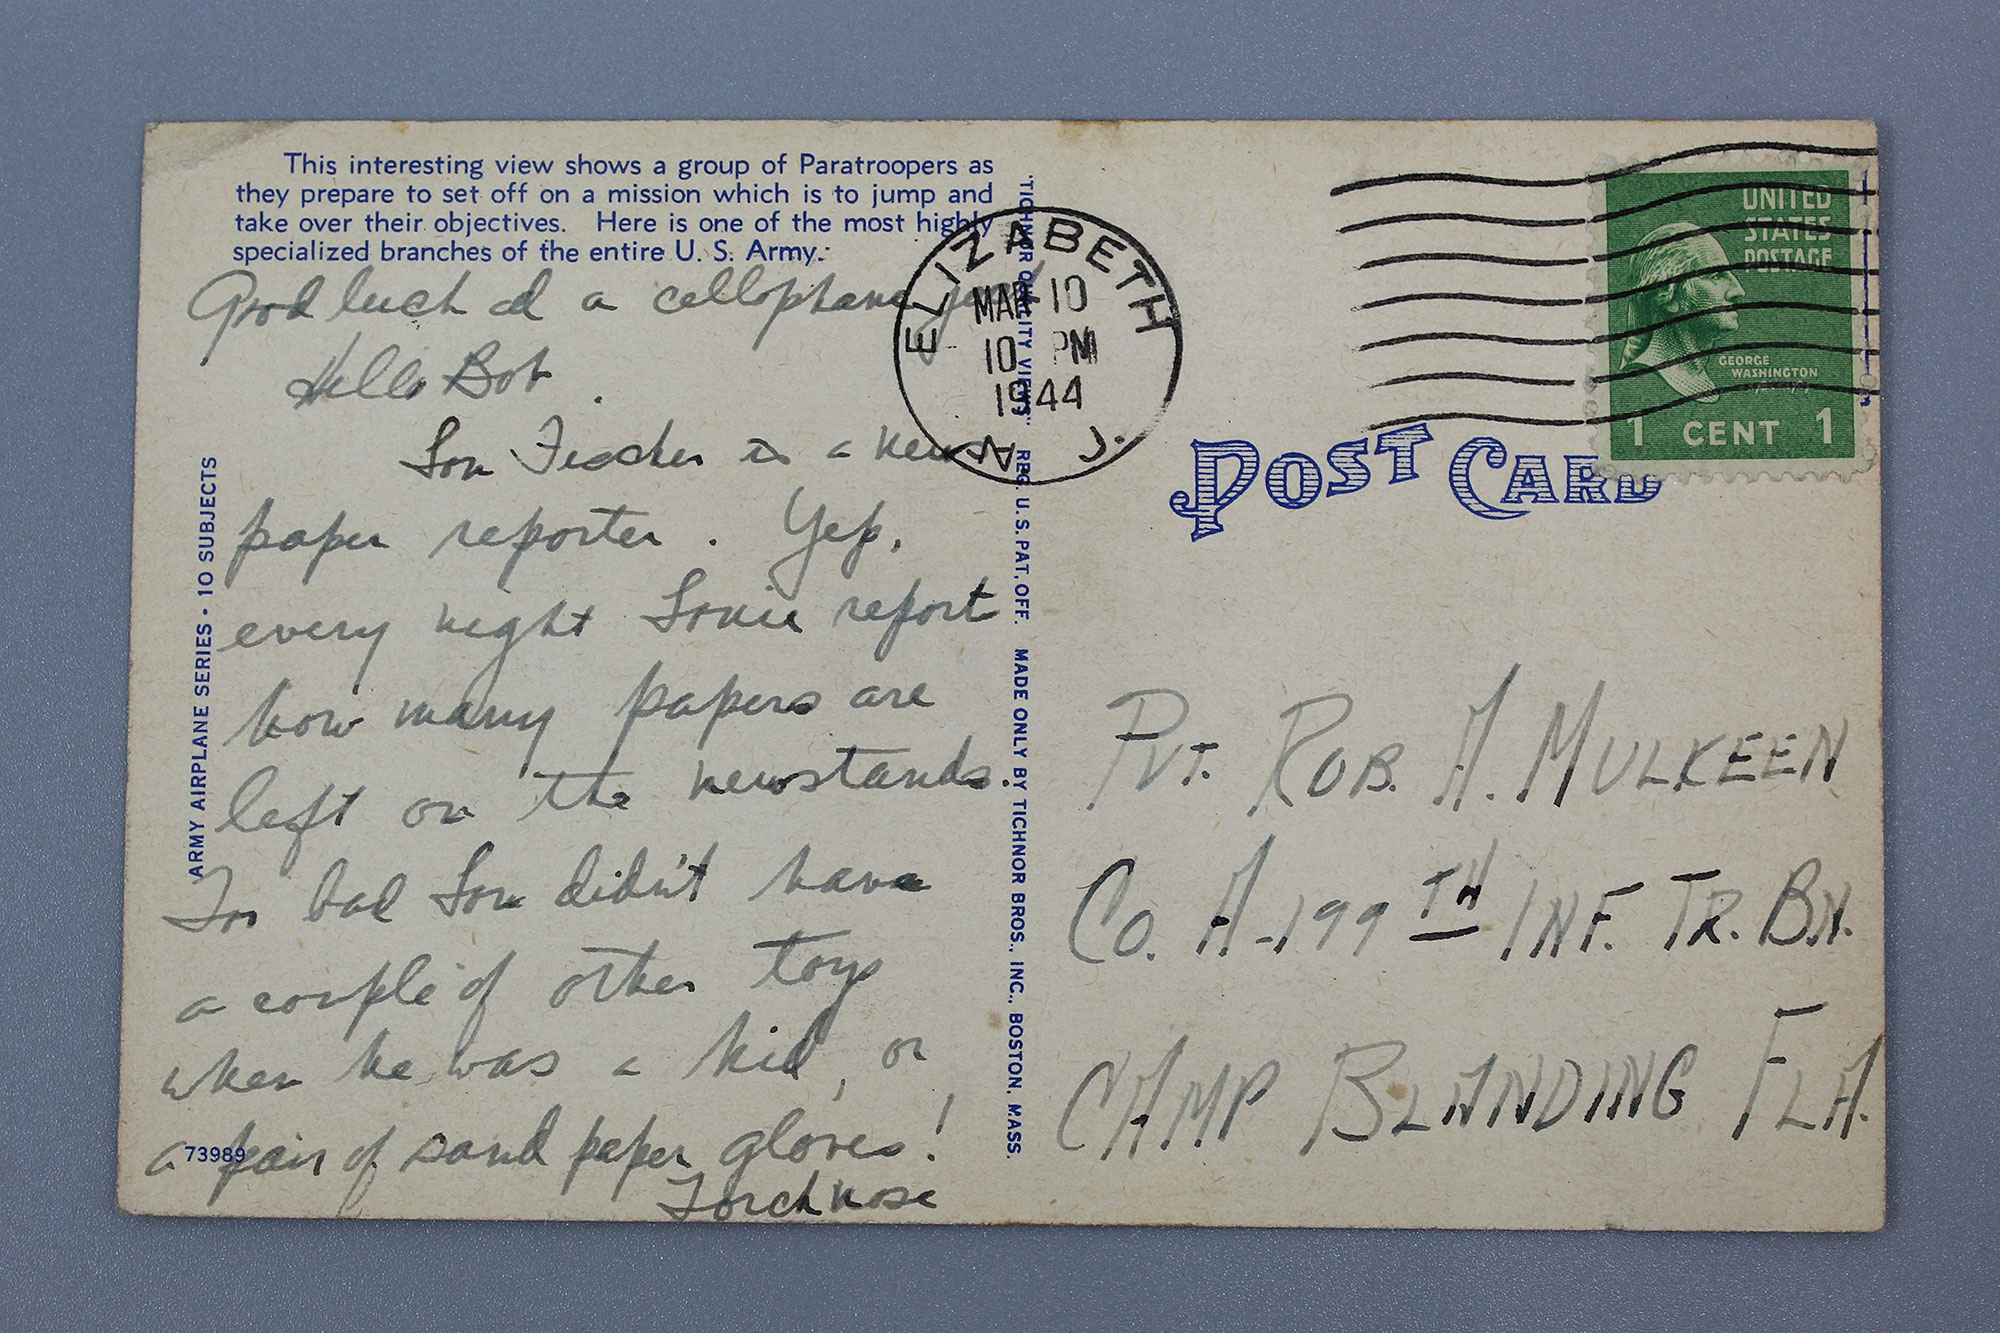 This interesting view shows a group of Paratroopers as
they prepare to set off on a mission which is to jump and
take over their objectives. Here is one of the most highly
specialized branches of the entire U. S. Army.
Good luck a cellophane
Hello Bob
Lou Fischer is a news
paper reporter. Yep,
every night Louie report
how many papers are
left on the newstands.
Too bad Lou didn't have
a couple of other toys
when he was a kid, or
a pair of sand paper gloves!
Torchnose
73989
ARMY AIRPLANE SERIES - 10 SUBJECTS
"TICHNOR QUALITY VIEWS" REG. U.S. PAT. OFF. MADE ONLY BY TICHNOR BROS., INC., BOSTON, MASS.
ELIZABETH
MAR 10
10 PM
1944
N. J.
UNITED
STATES
POSTAGE
GEORGE
WASHINGTON
1 CENT 1
POST CARD
PVT. ROB. A. MULKEEN
CO. A-199TH INF. TR. BN.
CAMP BLANDING FLA.